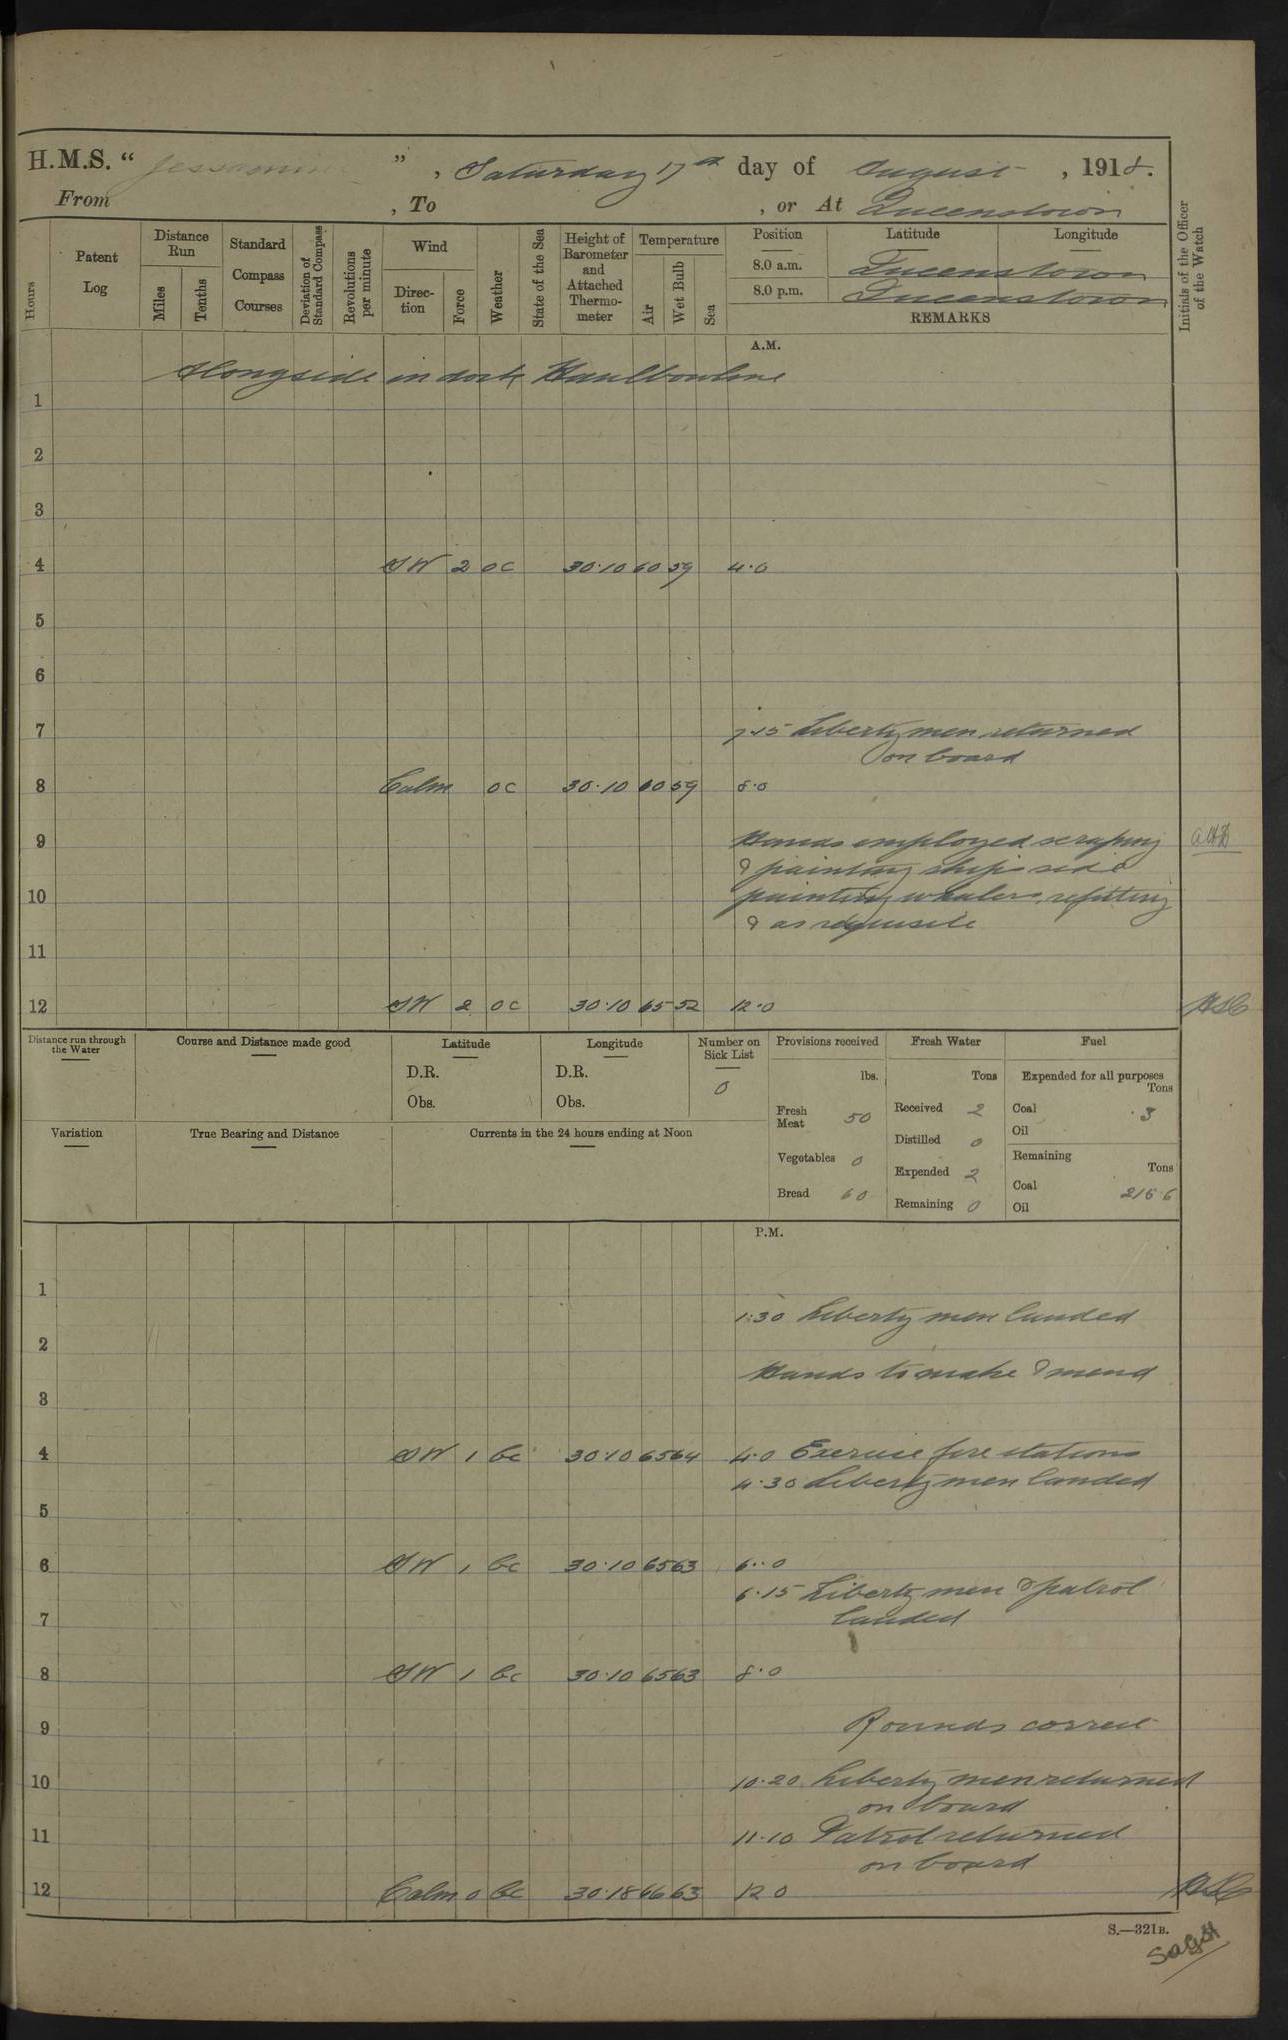 H.M.S. " Jessamine " , Saturday 17th day of August , 1918.
From , To , or At Queenstown
Hours
Patent Log
Distance Run
Miles
Tenths
Standard Compass Courses
Deviation of Standard Compass
Revolutions per minute
Wind
Direc- tion
Force
Weather
State of the Sea
Height of Barometer and Attached Thermo- meter
Temperature
Air
Wet Bulb
Sea
Position Latitude Longitude
8.0 a.m. Queenstown
8.0 p.m. Queenstown
REMARKS
Initials of the Officer of the Watch
A.M.
Alongside in dock Haulbowline
1
2
3
4 SW 2 oc 30.10 60 59 4.0
5
6
7 7.15 Liberty men returned
on board
8 Calm oc 30.10 60 59 8.0
9 Hands employed scraping
& painting ships side
10 painting whalers, refitting
& as requisite
11
12 SW 2 oc 30.10 65 52 12.0
Distance run through the Water
Course and Distance made good
Latitude
D.R.
Obs.
Longitude
D.R.
Obs.
Number on Sick List
0
Provisions received
lbs.
Fresh Meat 50
Vegetables 0
Bread 60
Fresh Water
Tons
Received 2
Distilled 0
Expended 2
Remaining 0
Fuel
Expended for all purposes
Tons
Coal .3
Oil
Remaining
Tons
Coal 216.6
Oil
Variation
True Bearing and Distance
Currents in the 24 hours ending at Noon
P.M.
1
1.30 Liberty men landed
2
Hands to make & mend
3
4 SW 1 bc 30.10 65 64 4.0 Exercise fire stations
4.30 Liberty men landed
5
6 SW 1 bc 30.10 65 63 6.0
6.15 Liberty men & patrol
7 landed
8 SW 1 bc 30.10 65 63 8.0
9 Rounds correct
10 10.20 Liberty men returned
on board
11 11.10 Patrol returned
on board
12 Calm 0 bc 30.18 66 63 12 0
S.—321B.